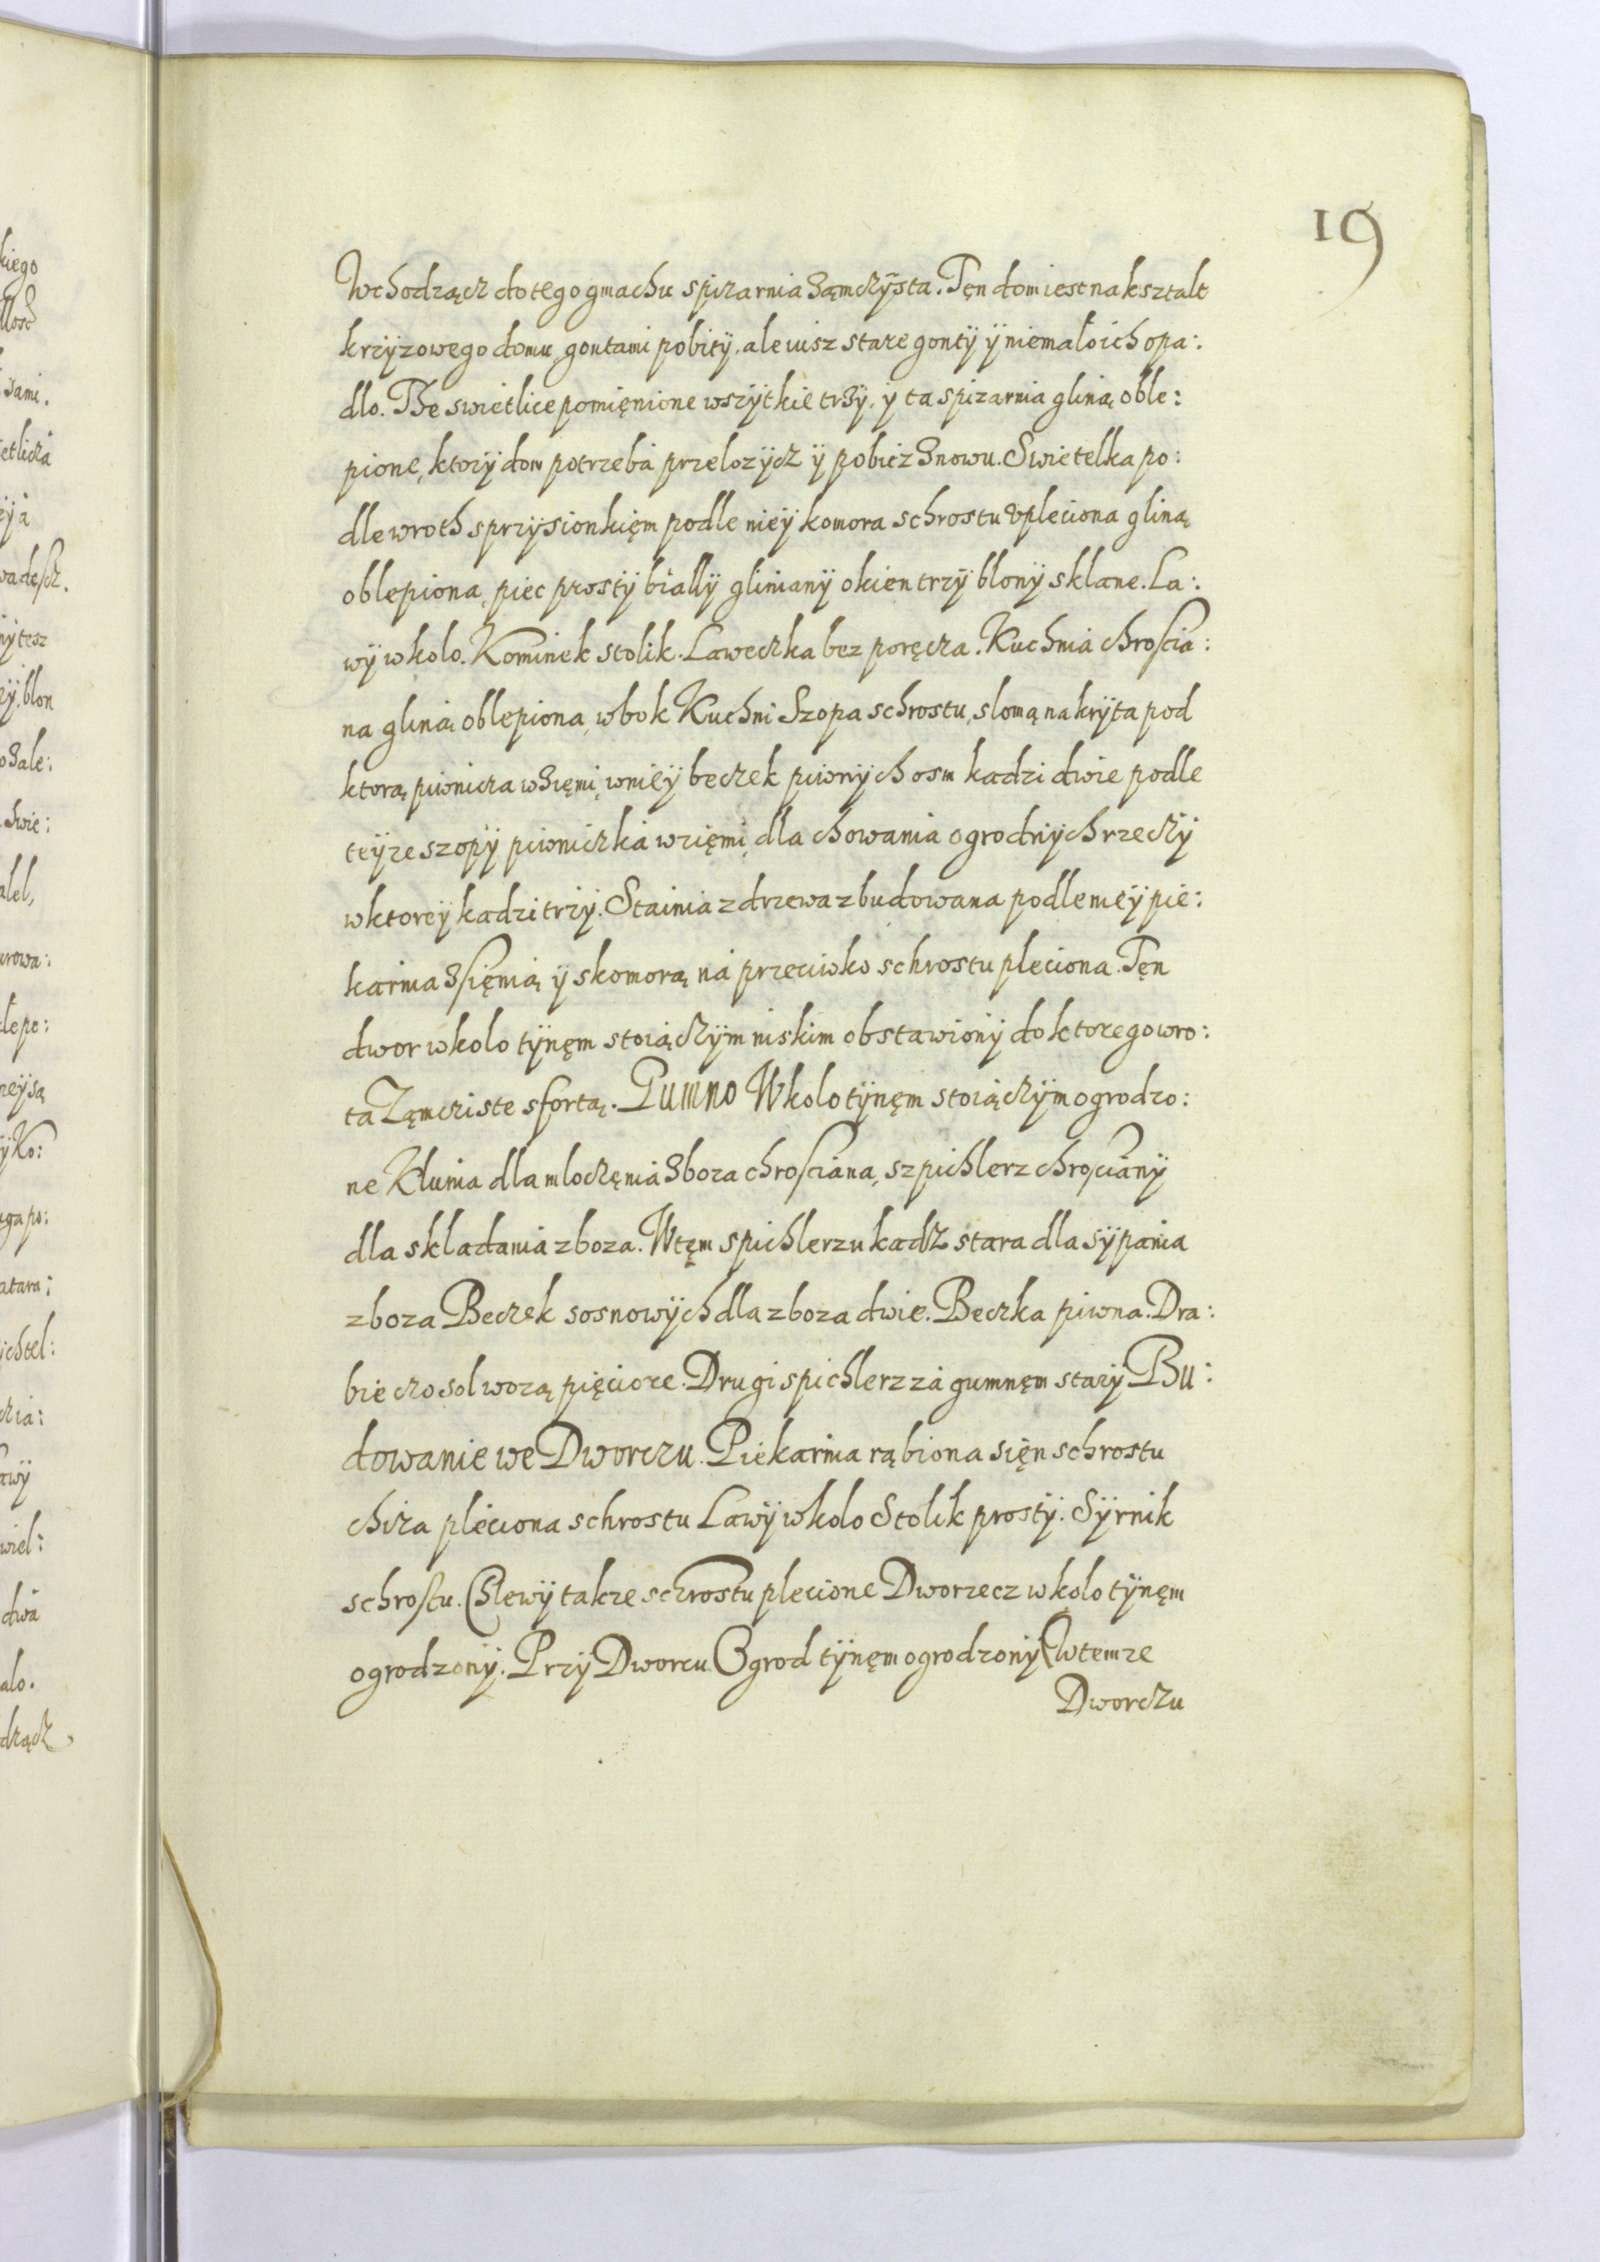 19
Wchodzącz do tego gmachu spizarnia zamczÿsta. Tęn dom iest na ksztalt
krzÿzowego domu, gontami pobitÿ, ale iusz stare gontÿ ÿ niemało ich opa:
dlo. The swietlice pomięnione wszÿtkie trzÿ, ÿ ta spizarnia gliną oble:
pione, ktorÿ dom potrzeba przelozÿcz ÿ pobicz znowu. Swietelka po:
dle wroth sprzÿsionkięm podle nieÿ komora schrostu vpleciona gliną
oblepiona, piec prostÿ biallÿ glinianÿ okien trzÿ blonÿ sklane. La:
wÿ wkolo. Kominek stolik. Laweczka bez poręcza. Kuchnia chroscia:
na gliną oblepiona, wbok Kuchni Szopa schrostu, slomą nakrÿta pod
ktorą piwnicza wzięmi, wnieÿ beczek piwnÿch osm kadzi dwie podle
teÿze szopÿ piwniczka wzięmi, dla chowania ogrodnÿch rzeczÿ
wktoreÿ kadzi trzÿ. Stainia z drzewa zbudowana podle nieÿ pie:
karnia zsięnią ÿ skomorą na przeciwko schrostu pleciona. Tęn
dwor wkolo tÿnęm stoiączÿm niskim obstawionÿ do ktorego wro:
ta Zamcziste sfortą. Gumno Wkolo tÿnęm stoiączÿm ogrodzo:
ne Kłunia dla mloczęnia zboza chrosciana, szpichlerz chroscianÿ
dla skladania zboza. Wtęm spichlerzu kadz stara dla sÿpania
zboza Beczek sosnowÿch dla zboza dwie. Beczka piwna. Dra:
bie czo sol wozą pięciore. Drugi spichlerz za gumnęm starÿ Bu:
dowanie we Dworczu. Piekarnia rąbiona sięn schrostu
chiza pleciona schrostu Lawÿ wkolo Stolik prostÿ. Sÿrnik
schrostu. Chlewÿ takze schrostu plecione Dworzecz wkolo tÿnęm
ogrodzonÿ. Przÿ Dworcu Ogrod tÿnęm ogrodzonÿ Wtemze
Dworczu